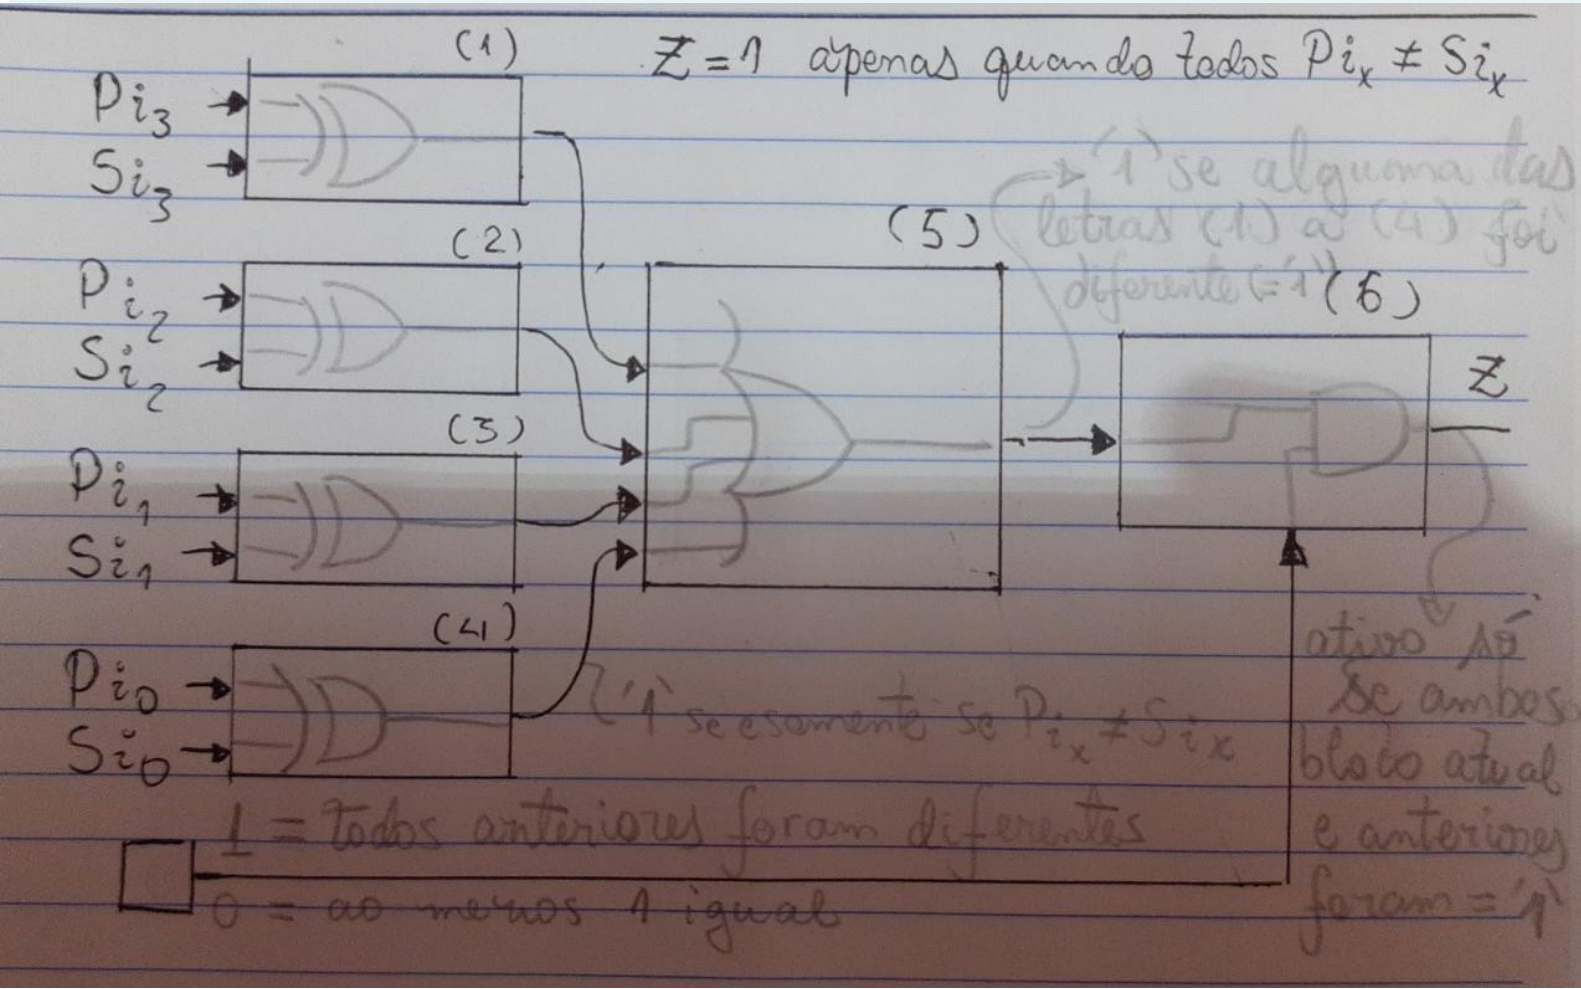 (1)
Z=1 apenas quando todos Pix ≠ Six
Pi3
Si3
'1' se alguma das
letras (1) a (4) foi
diferente (='1')
(2)
Pi2
Si2
(5)
(6)
Z
(3)
Pi1
Si1
(4)
Pi0
Si0
'1' se e somente se Pix ≠ Six
ativo só
se ambos
bloco atual
e anteriores
foram = '1'
1 = todos anteriores foram diferentes
0 = ao menos 1 igual